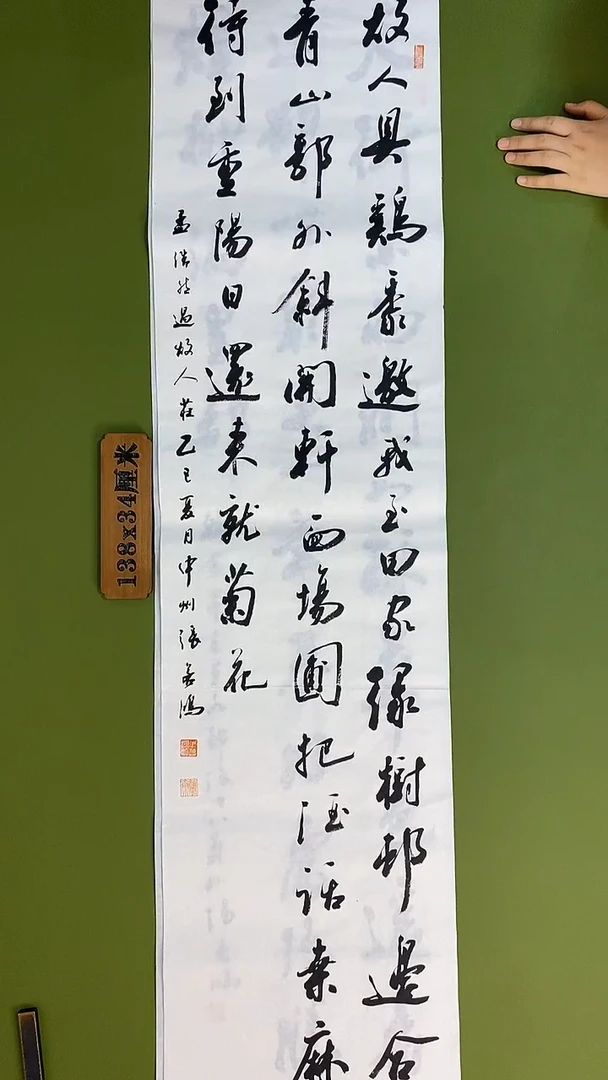 故人具鷄黍邀我至田家緑樹邨邊合
青山郭外斜開軒面場圃把酒話桑麻
待到重陽日還来就菊花
孟浩然過故人莊乙巳夏月中州張
138x34厘米